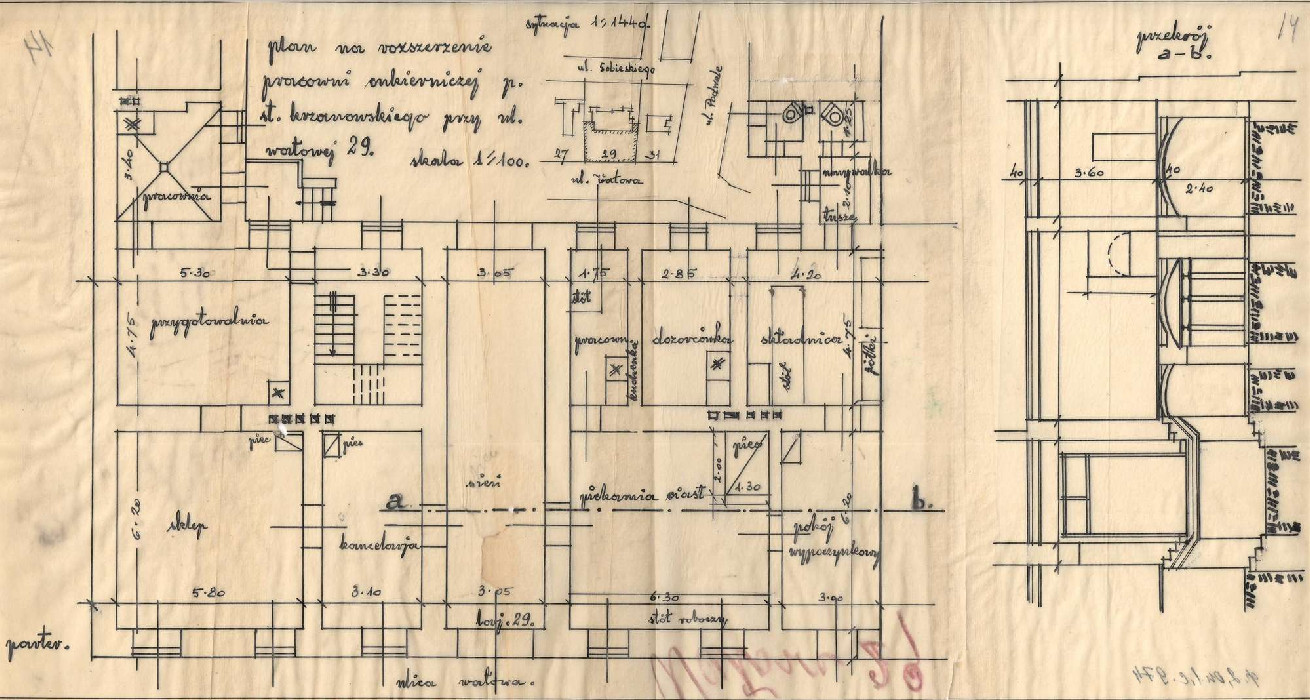 plan na rozszerzenie
pracowni cukierniczej p.
st. krzanowskiego przy ul.
wałowej 29.
skala 1:100.
sytuacja 1:1440.
ul. Sobieskiego
ul. Podwale
27 29 31
ul. Wałowa
przekrój
a-b.
14
3.40
pracownia
umywalka
2.10
tusze
5.30
3.30
3.05
1.75
2.85
4.20
stół
4.75
przygotowalnia
pracown
kuchenka
dozorcówka
składnica
stół
4.75
półki
piec
piec
sieni
piec
2.00
1.30
piekarnia ciast
a
b.
6.20
sklep
kancelarja
pokój
wypoczynkowy
6.20
5.80
3.10
3.05
6.30
3.90
stół roboczy
parter.
ulica wałowa.
40
3.60
40
2.40